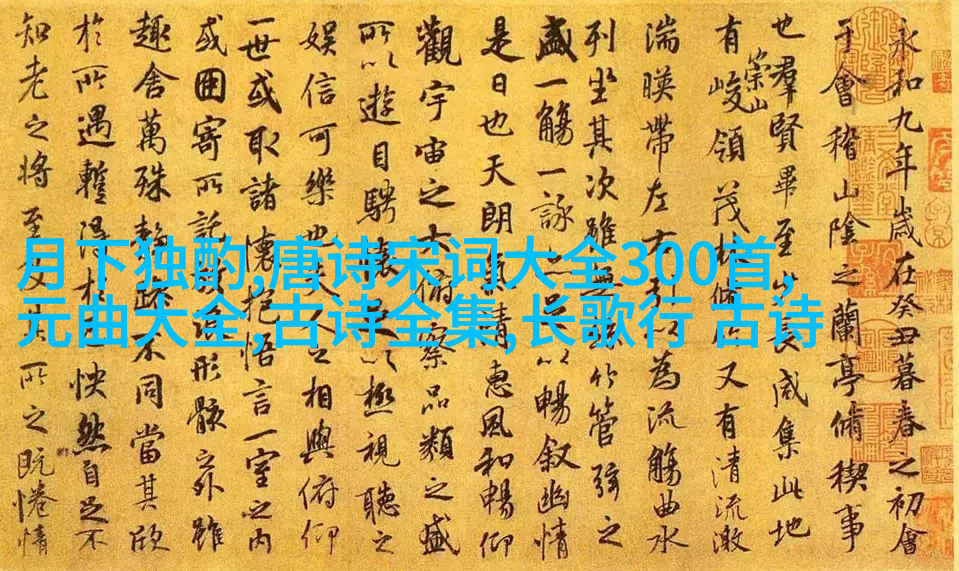 月下独酌,唐诗宋词大全300首,
元曲大全,古诗全集,长歌行 古诗
永和九年歲在癸丑暮春之初會
于會稽山陰之蘭亭脩禊事
也羣賢畢至少長咸集此地
有崇山峻領茂林脩竹又有清流激
湍暎帶左右引以為流觴曲水
列坐其次雖無絲竹管弦之
盛一觴一詠亦足以暢叙幽情
是日也天朗氣清惠風和暢仰
觀宇宙之大俯察品類之盛
所以遊目騁懷足以極視聽之
娛信可樂也夫人之相與俯仰
一世或取諸懷抱悟言一室之內
或因寄所託放浪形骸之外雖
趣舍萬殊靜躁不同當其欣
於所遇暫得於己怏然自足不
知老之將至及其所之既惓情